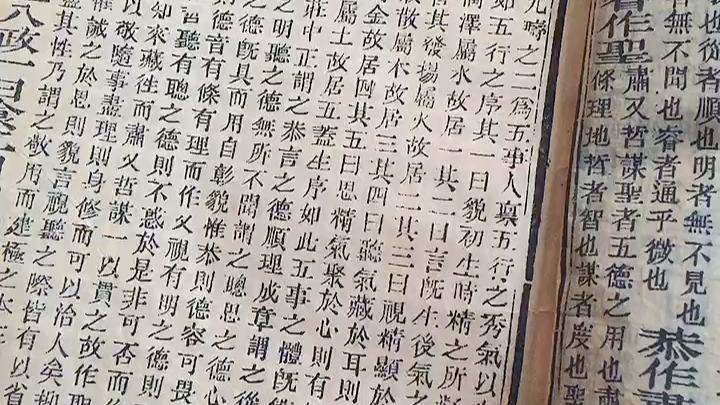 也從者順也明者無不見也
者無不聞也睿者通乎微也
恭作肅
作聖
肅乂哲謀聖者五德之用也肅
條理也哲者智也謀者度也聖
九疇之二為五事人稟五行之秀氣以
如五行之序其一曰貌初生時精之所
潤澤屬水故居一其二曰言既生後氣之
其發揚屬火故居二其三曰視精顯於
散屬木故居三其四曰聽氣藏於耳則
金故居四其五曰思精氣聚於心則有
屬土故居五蓋生序如此五事之體既
莊中正謂之恭言之德順理成章謂之
之明聽之德無所不聞謂之聰思之德心
之德既具而用自彰貌惟恭則德容可畏
則德音有條有理而作乂視有明之德則
聽有聰之德則不惑於是非可否而作
知來藏往而肅乂哲謀一以貫之故作聖
以敬隨事盡理則身修而可以治人矣抑
誠之於思則貌言視聽之際皆有以省
盡其性乃謂之敬用而建極之本
八政一曰食